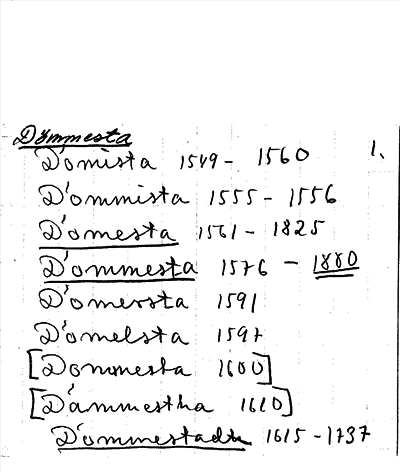 Dömmesta
1.
Dömista 1549 - 1560
Dömmista 1555 - 1556
Dömesta 1561 - 1825
Dömmesta 1576 - 1880
Dömersta 1591
Dömelsta 1597
[Dommesta 1600]
[Dämmestha 1610]
Dömmestadh 1615 - 1737